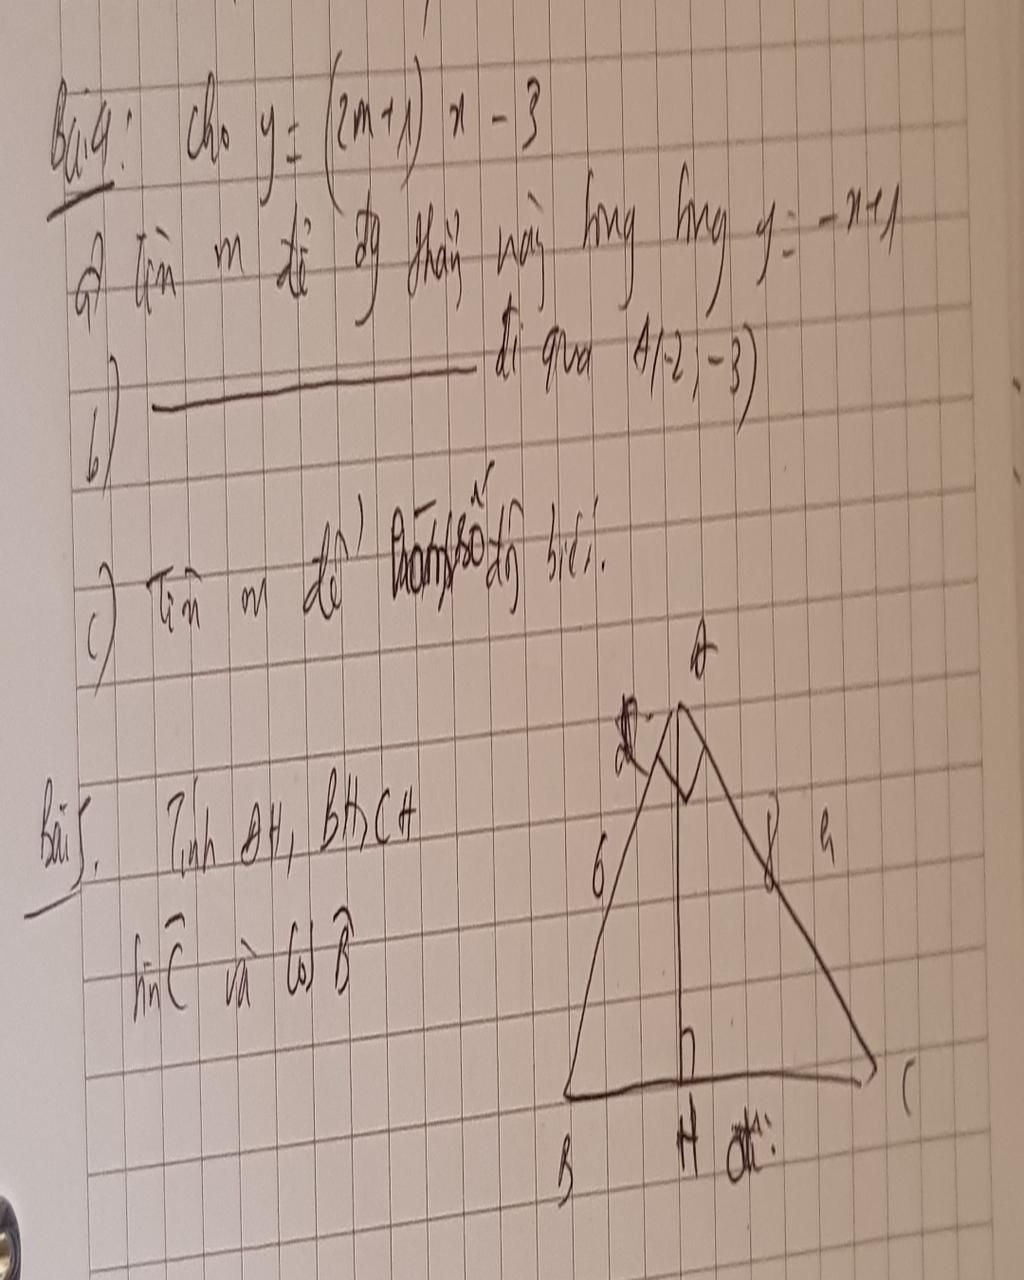 Bài 4: Cho y = (2m+1) x - 3
a) Tìm m để đg thẳng này song song y = -x+1
b) ——— đi qua A(-2; -3)
c) Tìm m để hàm số đg biến.
A
6 8
Bài 5. Tính AH, BH, CH
sin Ĉ và Cos B̂
B H C